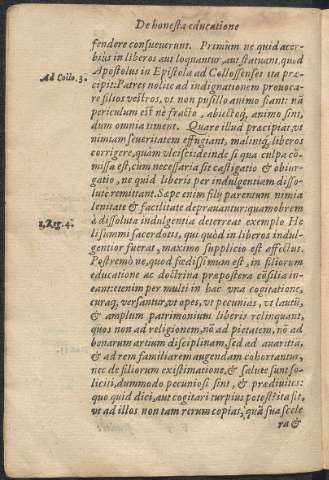 De honesta educatione
fendere consueuerunt. Primùm ne quid acer-
biùs in liberos aut loquantur, aut statuant, quod
Ad Collo. 3.
Apostolus in Epistola ad Collossenses ita præ-
cipit: Patres nolite ad indignationem prouoca-
re filios vestros, vt non pusillo animo fiant: nã
periculum est nè fracto, abiectoq́, animo sint,
dum omnia timent. Quare illud præcipiat, vt
nimiam seueritatem effugiant, malintq́, liberos
corrigere, quàm vlcisci: deinde si qua culpa cõ-
missa est, cum necessaria sit castigatio & obiur-
gatio, ne quid liberis per indulgentiam disso-
lutè remittant. Sæpe enim filij parentum nimia
lenitate & facilitate deprauantur: quamobrem
1. Reg. 4.
à dissoluta indulgentia deterreat exemplo He
li summi sacerdotis, qui quòd in liberos indul-
gentior fuerat, maximo supplicio est affectus.
Postremò ne, quod fœdissimum est, in filiorum
educatione ac doctrina præpostera cõsilia in-
eant: etenim per multi in hac vna cogitatione,
curaq́, versantur, vt opes, vt pecunias, vt lautũ,
& amplum patrimonium liberis relinquant,
quos non ad religionem, nõ ad pietatem, nõ ad
bonarum artium disciplinam, sed ad auaritiã,
& ad rem familiarem augendam cohortantur,
nec de filiorum existimatione, & salute sunt so-
liciti, dummodo pecuniosi sint, & prædiuites:
quo quid dici, aut cogitari turpius potest? ita fit,
vt ad illos non tam rerum copias, quã sua scele
ra &